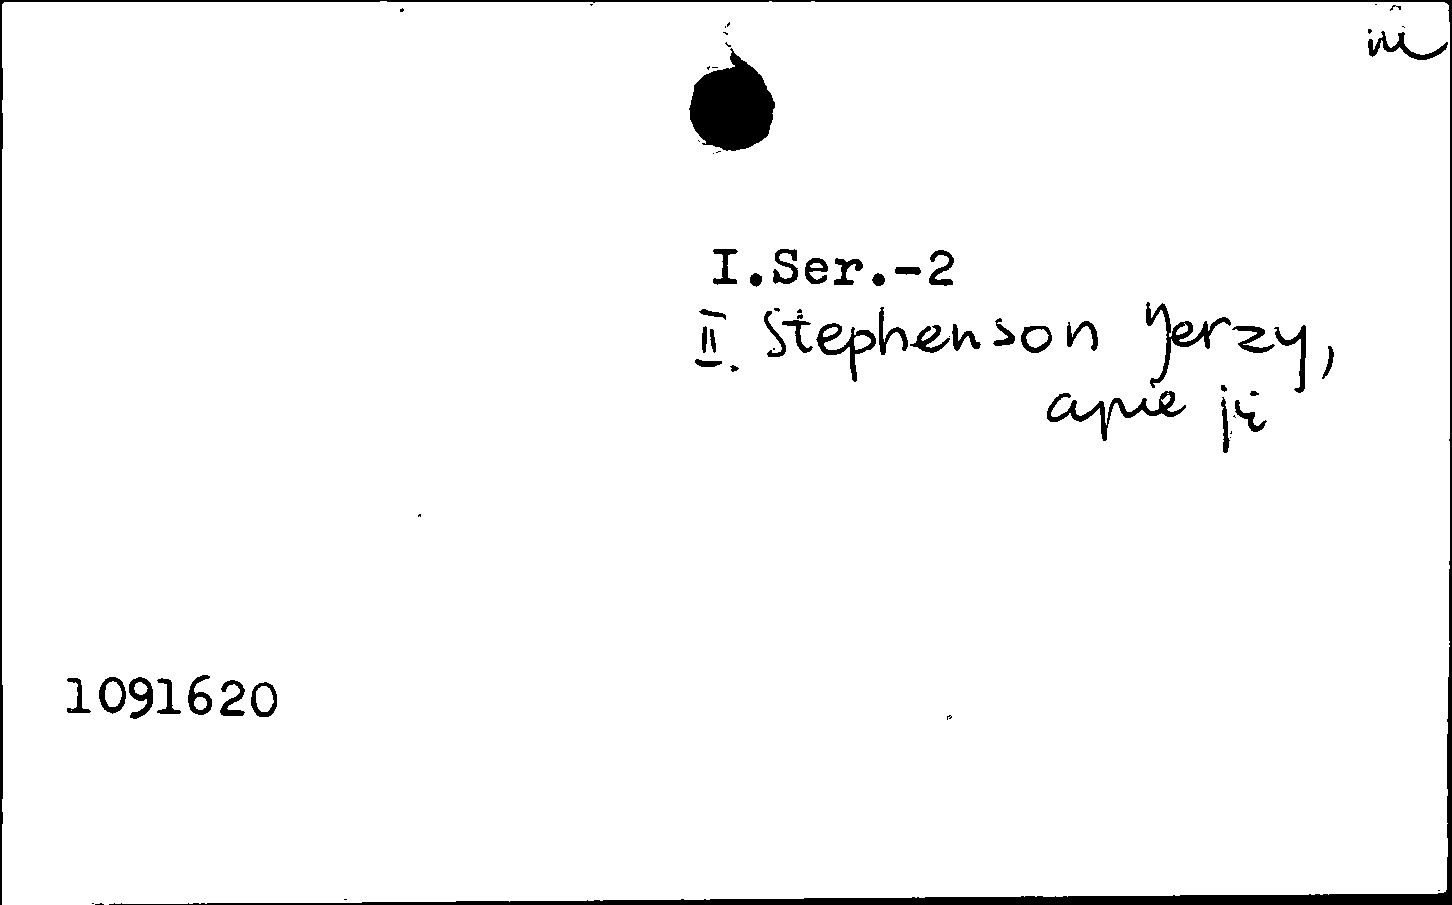 I.Ser.-2
II. Stephenson Jerzy,
apie jį
1091620